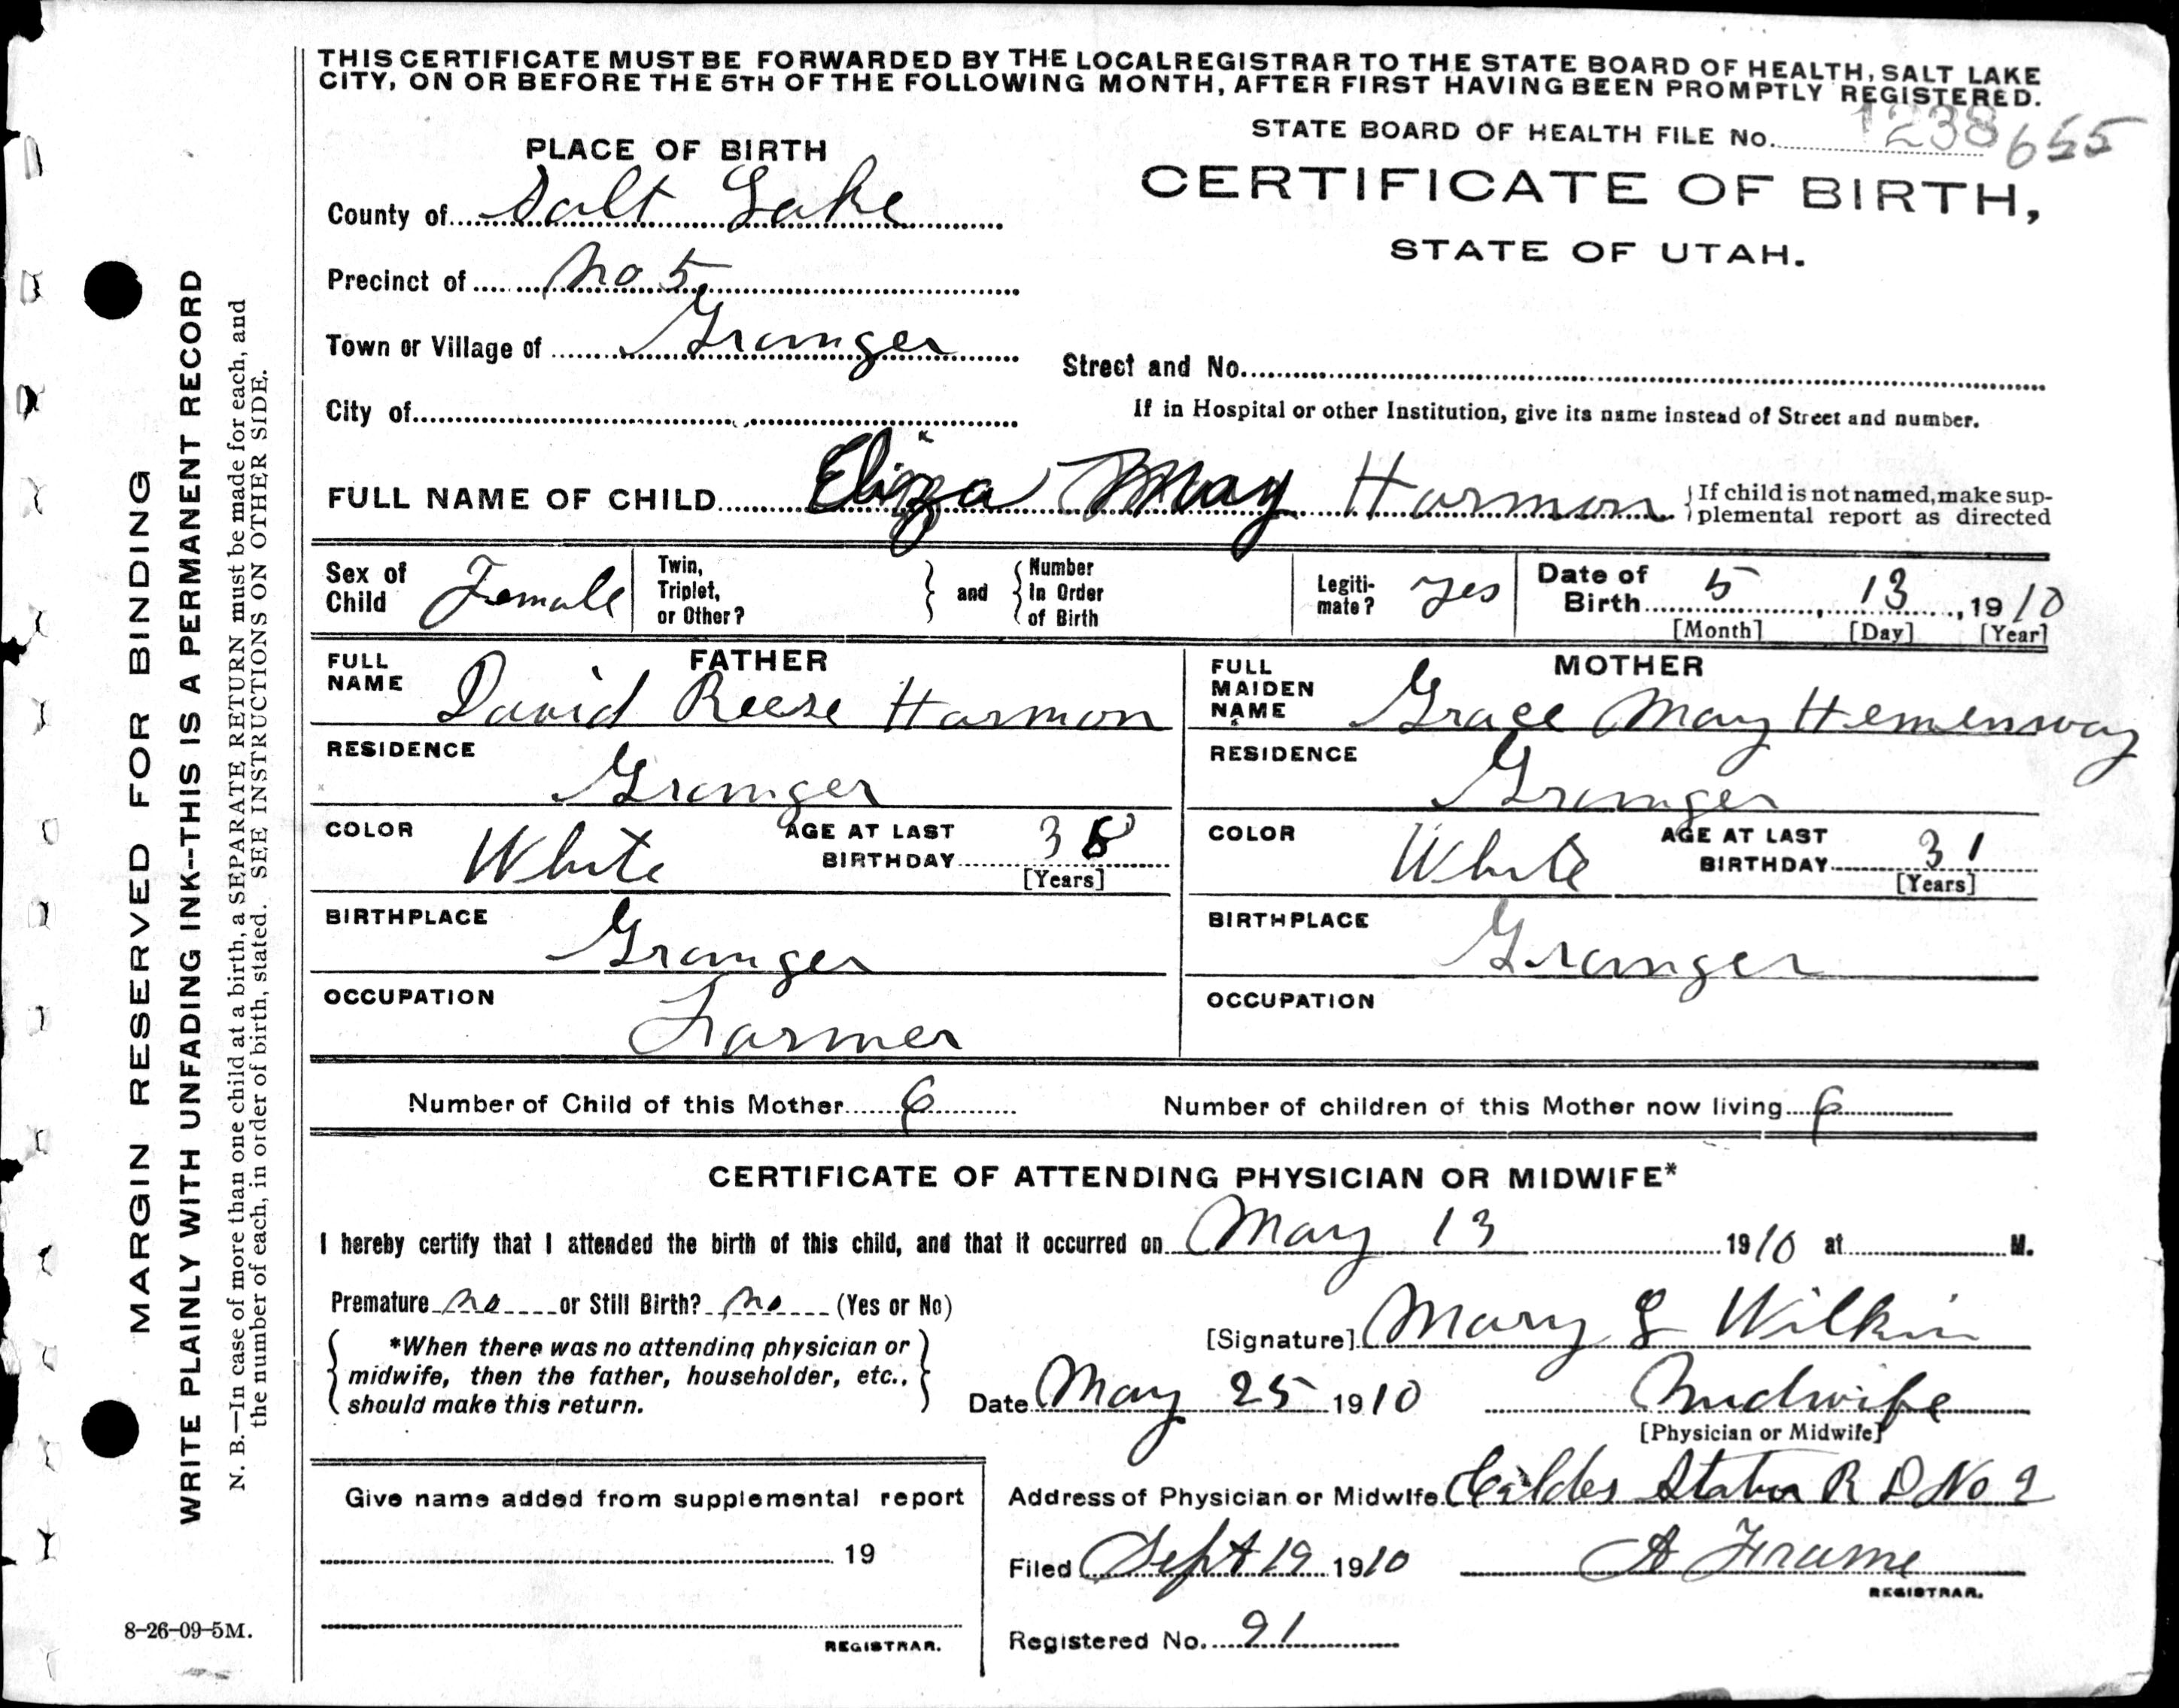 THIS CERTIFICATE MUST BE FORWARDED BY THE LOCAL REGISTRAR TO THE STATE BOARD OF HEALTH, SALT LAKE
CITY, ON OR BEFORE THE 5TH OF THE FOLLOWING MONTH, AFTER FIRST HAVING BEEN PROMPTLY REGISTERED.
STATE BOARD OF HEALTH FILE No. 1238 655
PLACE OF BIRTH
CERTIFICATE OF BIRTH,
STATE OF UTAH.
County of Salt Lake
Precinct of No 5
Town or Village of Granger
Street and No.
City of
If in Hospital or other Institution, give its name instead of Street and number.
FULL NAME OF CHILD Eliza May Harmon
If child is not named, make sup-
plemental report as directed
Sex of Child Female
Twin, Triplet, or Other?
and
Number In Order of Birth
Legiti-
mate? yes
Date of Birth 5, 13, 1910
[Month] [Day] [Year]
FATHER
FULL NAME David Reese Harmon
RESIDENCE Granger
COLOR White
AGE AT LAST BIRTHDAY 38
[Years]
BIRTHPLACE Granger
OCCUPATION Farmer
MOTHER
FULL MAIDEN NAME Grace May Hemenway
RESIDENCE Granger
COLOR White
AGE AT LAST BIRTHDAY 31
[Years]
BIRTHPLACE Granger
OCCUPATION
Number of Child of this Mother 6
Number of children of this Mother now living 6
CERTIFICATE OF ATTENDING PHYSICIAN OR MIDWIFE*
I hereby certify that I attended the birth of this child, and that it occurred on May 13 1910 at M.
Premature no or Still Birth? no (Yes or No)
*When there was no attending physician or
midwife, then the father, householder, etc.,
should make this return.
[Signature] Mary S Wilkin
Date May 25 1910
Midwife
[Physician or Midwife]
Give name added from supplemental report
19
REGISTRAR.
Address of Physician or Midwife Station R D No 2
Filed Sept 19 1910
A Frame
REGISTRAR.
Registered No. 91
MARGIN RESERVED FOR BINDING
WRITE PLAINLY WITH UNFADING INK--THIS IS A PERMANENT RECORD
N. B.—In case of more than one child at a birth, a SEPARATE RETURN must be made for each, and
the number of each, in order of birth, stated. SEE INSTRUCTIONS ON OTHER SIDE.
8-26-09-5M.